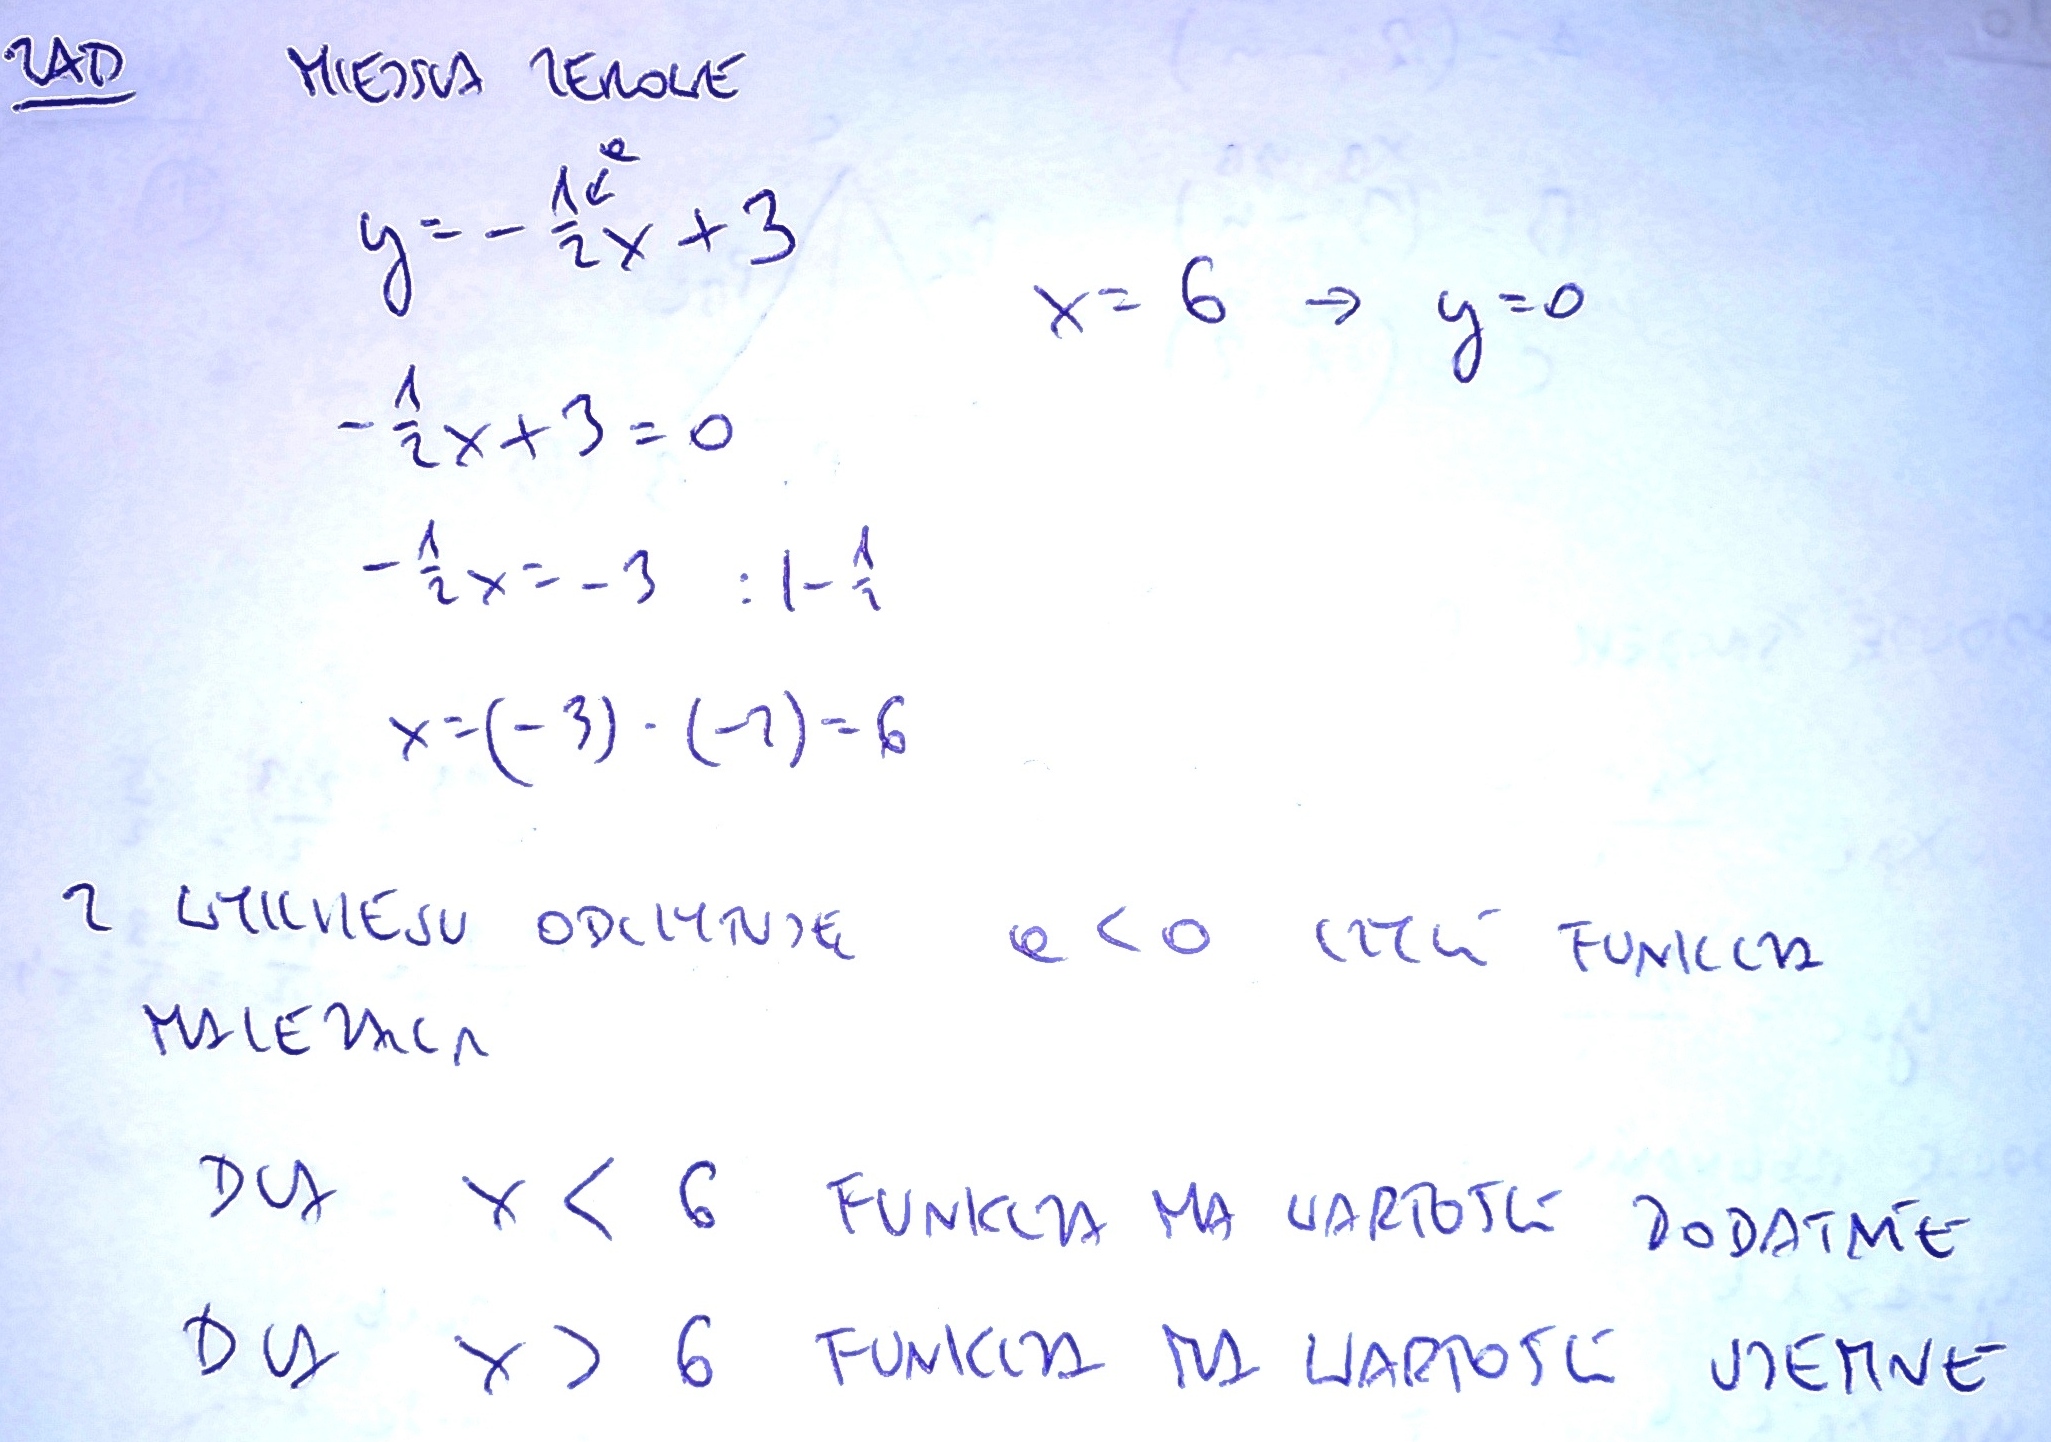 ZAD MIEJSCA ZEROWE
a
y = -1/2x + 3
x = 6 → y = 0
-1/2x + 3 = 0
-1/2x = -3 :|-1/2
x = (-3) · (-2) = 6
Z WYKRESU ODCZYTUJĘ a < 0 CZYLI FUNKCJA
MALEJĄCA
DLA x < 6 FUNKCJA MA WARTOŚCI DODATNIE
DLA x > 6 FUNKCJA MA WARTOŚCI UJEMNE